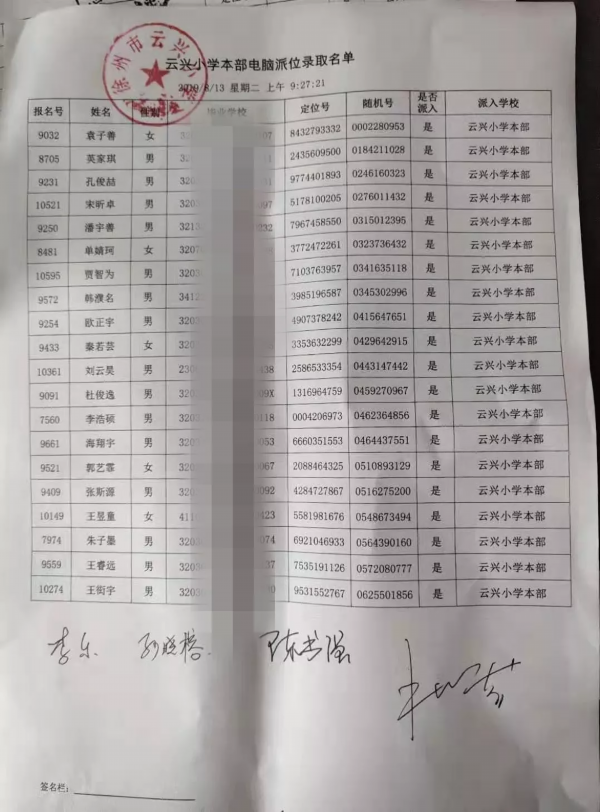 徐州市云兴小学
云兴小学本部电脑派位录取名单
2019/8/13 星期二 上午 9:27:21
报名号 姓名 性别 毕业学校 定位号 随机号 是否派入 派入学校
9032 袁子善 女 32 07 8432793332 0002280953 是 云兴小学本部
8705 英家琪 男 32 2435609500 0184211028 是 云兴小学本部
9231 孔俊喆 男 320 9774401893 0246160323 是 云兴小学本部
10521 宋昕卓 男 3203 097 5178100205 0276011432 是 云兴小学本部
9250 潘宇善 男 3213 332 7967458550 0315012395 是 云兴小学本部
8481 单婧珂 女 3207 3772472261 0323736432 是 云兴小学本部
10595 贾智为 男 3203 7103763957 0341635118 是 云兴小学本部
9572 韩濮名 男 3412 3985196587 0345302996 是 云兴小学本部
9254 欧正宇 男 3203 4907378242 0415647651 是 云兴小学本部
9433 秦若芸 女 3203 3353632299 0429642915 是 云兴小学本部
10361 刘云昊 男 230 338 2586533354 0443147442 是 云兴小学本部
9091 杜俊逸 男 3203 09X 1316964759 0459270967 是 云兴小学本部
7560 李浩硕 男 3203 118 0004206973 0462364856 是 云兴小学本部
9661 海翔宇 男 3203 053 6660351553 0464437551 是 云兴小学本部
9521 郭艺霏 女 320 067 2088464325 0510893129 是 云兴小学本部
9409 张斯源 男 320 092 4284727867 0516275200 是 云兴小学本部
10149 王昱童 女 411 423 5581981676 0548673494 是 云兴小学本部
7974 朱子墨 男 3203 074 6921046933 0564390160 是 云兴小学本部
9559 王睿远 男 3203 37 7535191126 0572080777 是 云兴小学本部
10274 王街宇 男 3203 0 9531552767 0625501856 是 云兴小学本部
李乐
签名栏：